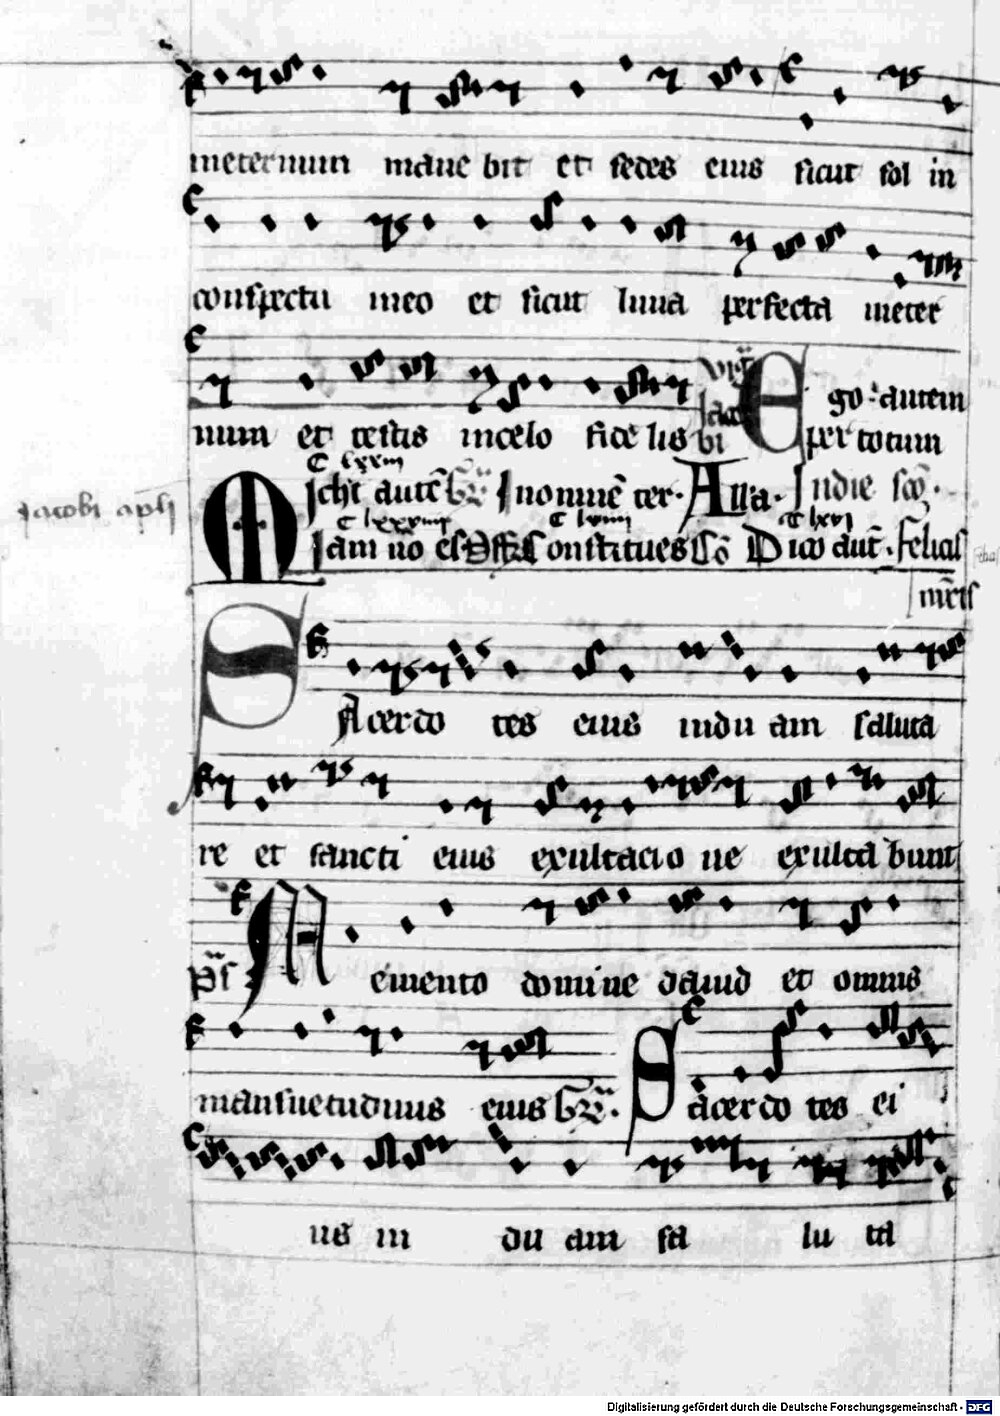 meternum mane bit et sedes eius sicut sol in
conspectu meo et sicut luna perfecta meter
num et testis incelo fide lis
Ego autem
per totum
C lxxiii
Jacobi apli
Alla. In die
C lxxxiiii C lviiii C lxvi
Iam no Constitues Dico aut.
SAcerdo tes eius indu am saluta
re et sancti eius exultacio ne exulta bunt
Ps Memento domine dauid et omnis
mansuetudinis eius Sacerdo tes ei
us in du am sa lu ta
Digitalisierung gefördert durch die Deutsche Forschungsgemeinschaft - DFG